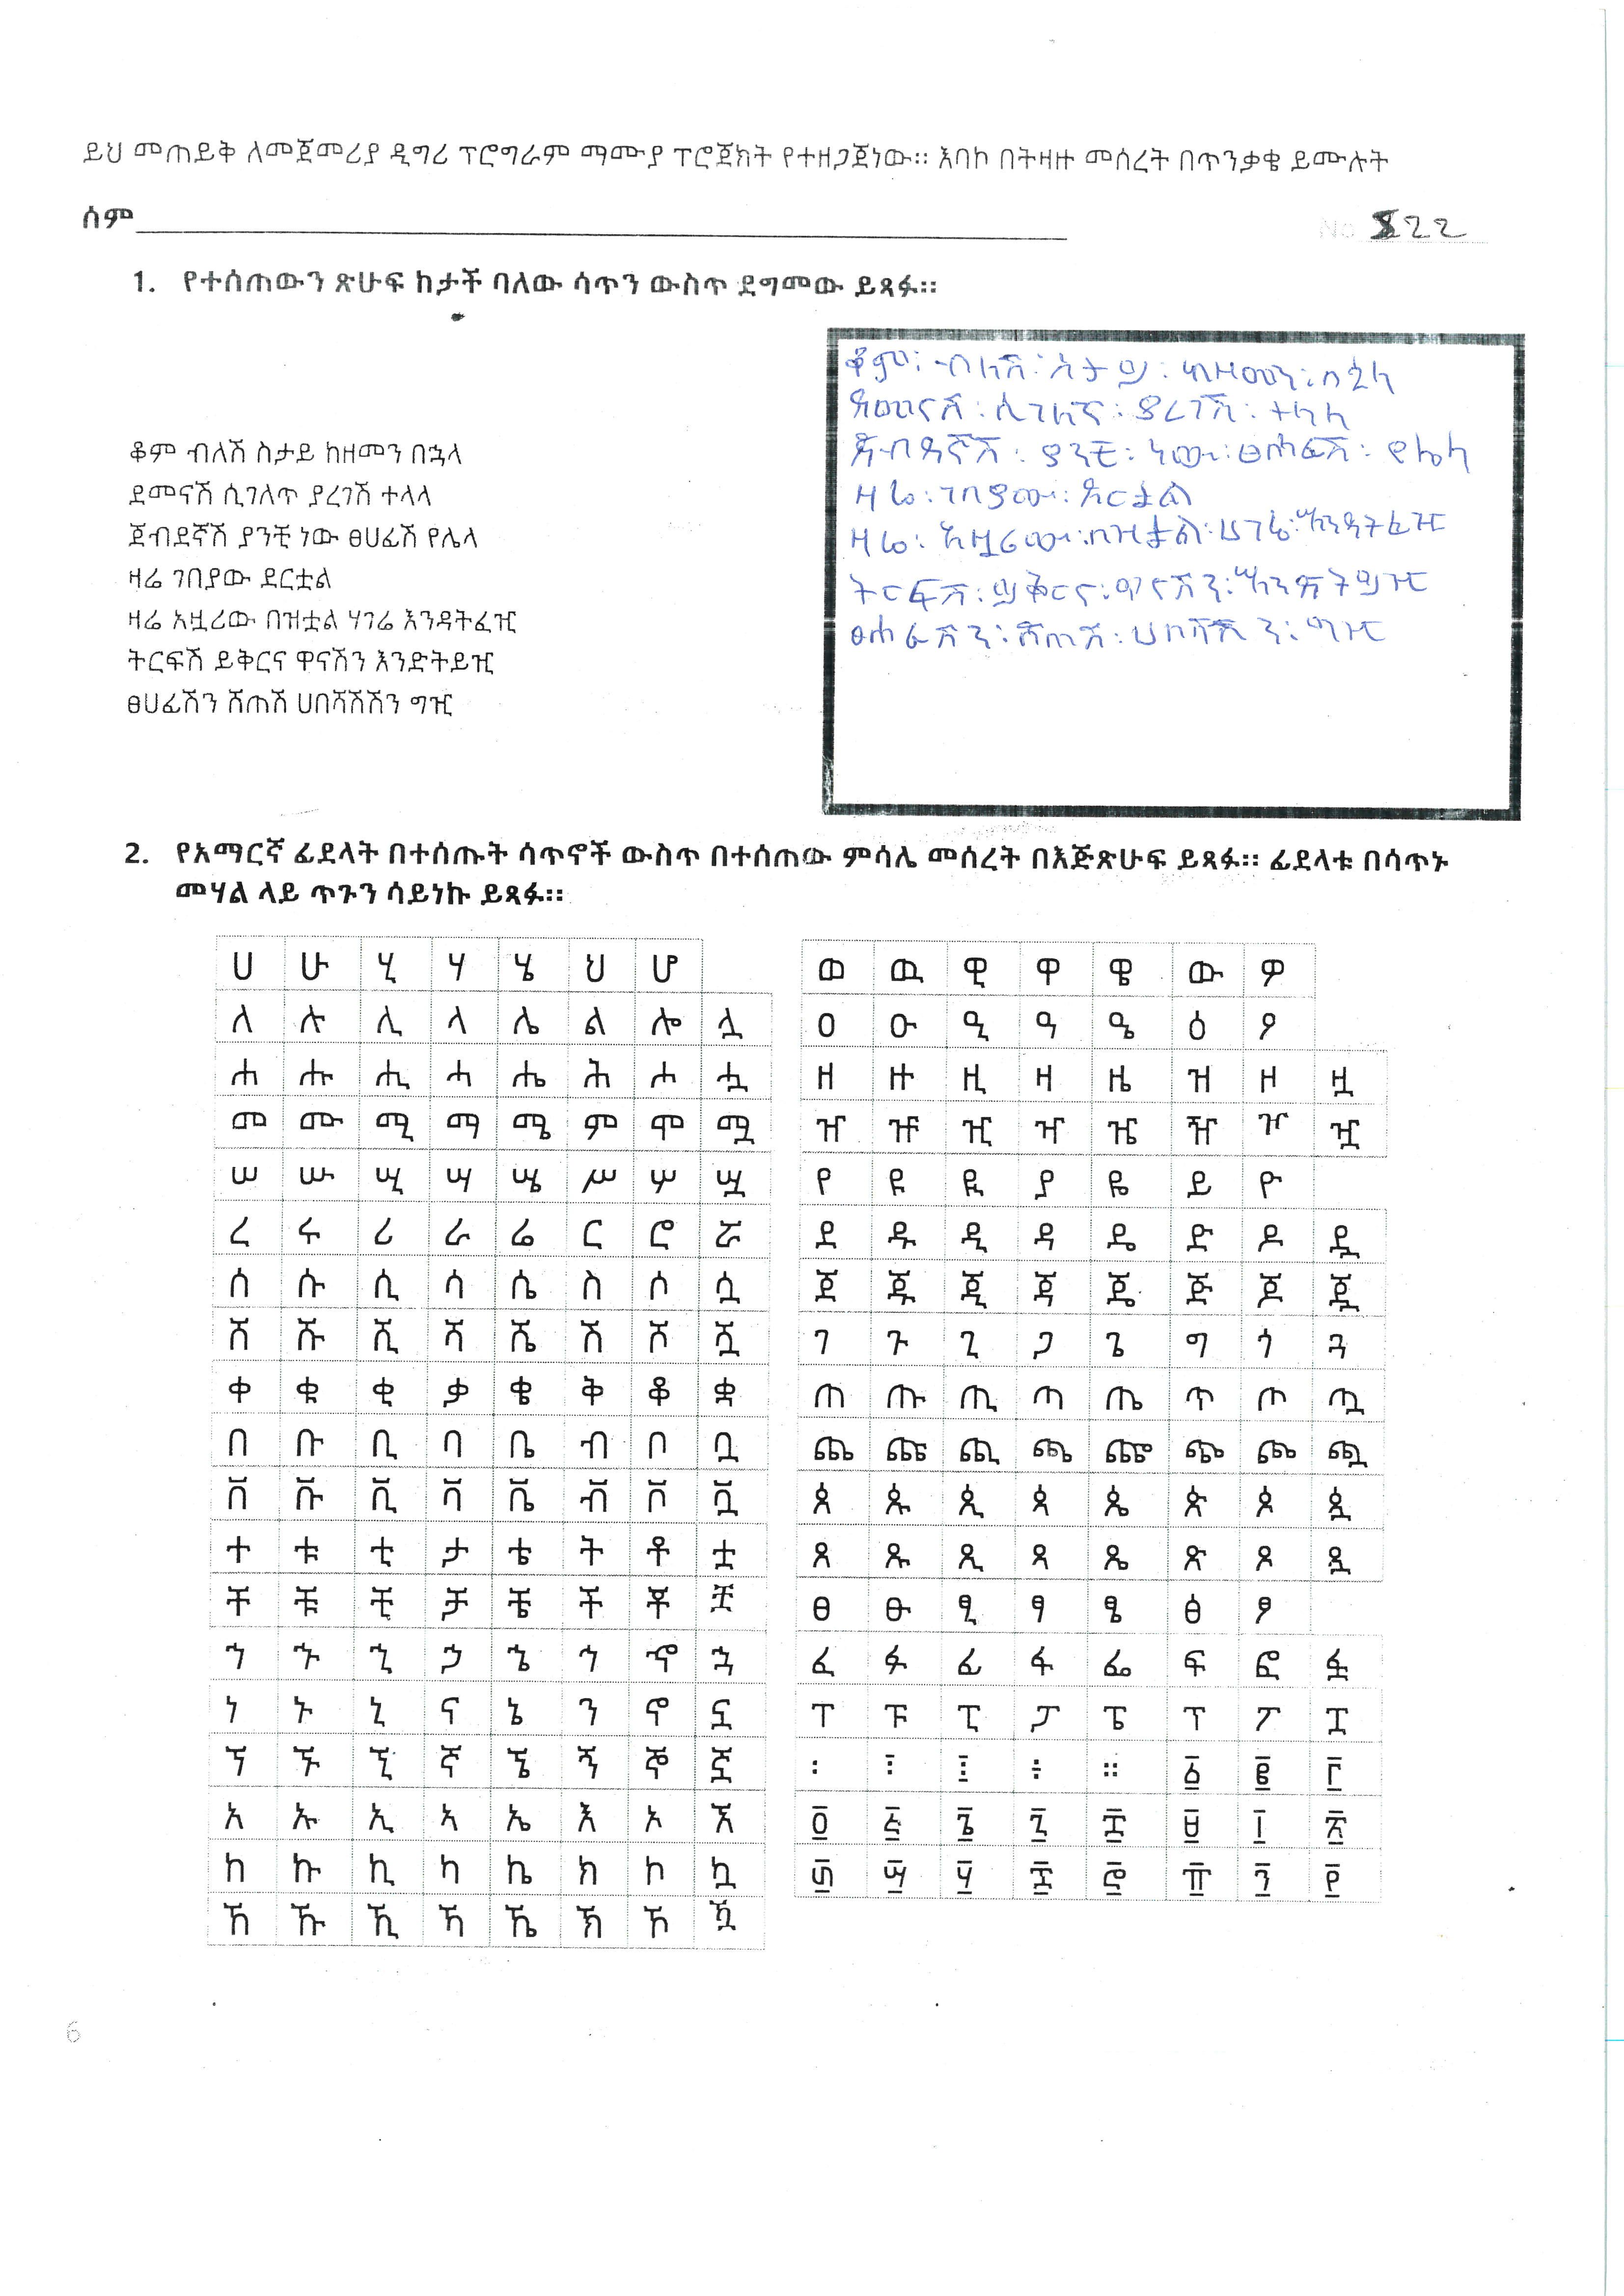 ይህ መጠይቅ ለመጀመሪያ ዲግሪ ፕሮግራም ማሙያ ፕሮጀክት የተዘጋጀነው። እባኮ በትዛዙ መሰረት በጥንቃቄ ይሙሉት
ስም
No 822
1. የተሰጠውን ጽሁፍ ከታች ባለው ሳጥን ውስጥ ደግመው ይጻፉ።
ቆም ብለሽ ስታይ ከዘመን በኋላ
ደመናሽ ሲገለጥ ያረገሽ ተላላ
ጀብደኛሽ ያንቺ ነው ፀሀፊሽ የሌላ
ዛሬ ገበያው ደርቷል
ዛሬ አዟሪው በዝቷል ሃገሬ እንዳትፈዢ
ትርፍሽ ይቅርና ዋናሽን እንድትይዢ
ፀሀፊሽን ሽጠሽ ሀበሻሽሽን ግዢ
ቆም፡ ብለሽ፡ ስታይ፡ ከዘመን፡ በኋላ
ደመናሽ፡ ሲገለጥ፡ ያረገሽ፡ ተላላ
ጀብደኛሽ፡ ያንቺ፡ ነው፡ ፀሐፊሽ፡ የሌላ
ዛሬ፡ ገበያው፡ ደርቷል
ዛሬ፡ አዟሪው፡ በዝቷል፡ ሀገሬ፡ እንዳትፈዢ
ትርፍሽ፡ ይቅርና፡ ዋናሽን፡ እንድትይዢ
ፀሐፊሽን፡ ሽጠሽ፡ ሀበሻሽን፡ ግዢ
2. የአማርኛ ፊደላት በተሰጡት ሳጥኖች ውስጥ በተሰጠው ምሳሌ መሰረት በእጅጽሁፍ ይጻፉ። ፊደላቱ በሳጥኑ
መሃል ላይ ጥጉን ሳይነኩ ይጻፉ።
ሀ ሁ ሂ ሃ ሄ ህ ሆ
ለ ሉ ሊ ላ ሌ ል ሎ ሏ
ሐ ሑ ሒ ሓ ሔ ሕ ሖ ሗ
መ ሙ ሚ ማ ሜ ም ሞ ሟ
ሠ ሡ ሢ ሣ ሤ ሥ ሦ ሧ
ረ ሩ ሪ ራ ሬ ር ሮ ሯ
ሰ ሱ ሲ ሳ ሴ ስ ሶ ሷ
ሸ ሹ ሺ ሻ ሼ ሽ ሾ ሿ
ቀ ቁ ቂ ቃ ቄ ቅ ቆ ቋ
በ ቡ ቢ ባ ቤ ብ ቦ ቧ
ቨ ቩ ቪ ቫ ቬ ቭ ቮ ቯ
ተ ቱ ቲ ታ ቴ ት ቶ ቷ
ቸ ቹ ቺ ቻ ቼ ች ቾ ቿ
ኀ ኁ ኂ ኃ ኄ ኅ ኆ ኋ
ነ ኑ ኒ ና ኔ ን ኖ ኗ
ኘ ኙ ኚ ኛ ኜ ኝ ኞ ኟ
አ ኡ ኢ ኣ ኤ እ ኦ ኧ
ከ ኩ ኪ ካ ኬ ክ ኮ ኳ
ኸ ኹ ኺ ኻ ኼ ኽ ኾ ዃ
ወ ዉ ዊ ዋ ዌ ው ዎ
ዐ ዑ ዒ ዓ ዔ ዕ ዖ
ዘ ዙ ዚ ዛ ዜ ዝ ዞ ዟ
ዠ ዡ ዢ ዣ ዤ ዥ ዦ ዧ
የ ዩ ዪ ያ ዬ ይ ዮ
ደ ዱ ዲ ዳ ዴ ድ ዶ ዷ
ጀ ጁ ጂ ጃ ጄ ጅ ጆ ጇ
ገ ጉ ጊ ጋ ጌ ግ ጎ ጓ
ጠ ጡ ጢ ጣ ጤ ጥ ጦ ጧ
ጨ ጩ ጪ ጫ ጬ ጭ ጮ ጯ
ጰ ጱ ጲ ጳ ጴ ጵ ጶ ጷ
ጸ ጹ ጺ ጻ ጼ ጽ ጾ ጿ
ፀ ፁ ፂ ፃ ፄ ፅ ፆ
ፈ ፉ ፊ ፋ ፌ ፍ ፎ ፏ
ፐ ፑ ፒ ፓ ፔ ፕ ፖ ፗ
፡ ፧ ፨ ፥ ። ፩ ፪ ፫
፬ ፭ ፮ ፯ ፰ ፱ ፲ ፳
፴ ፵ ፶ ፷ ፸ ፹ ፺ ፻
6